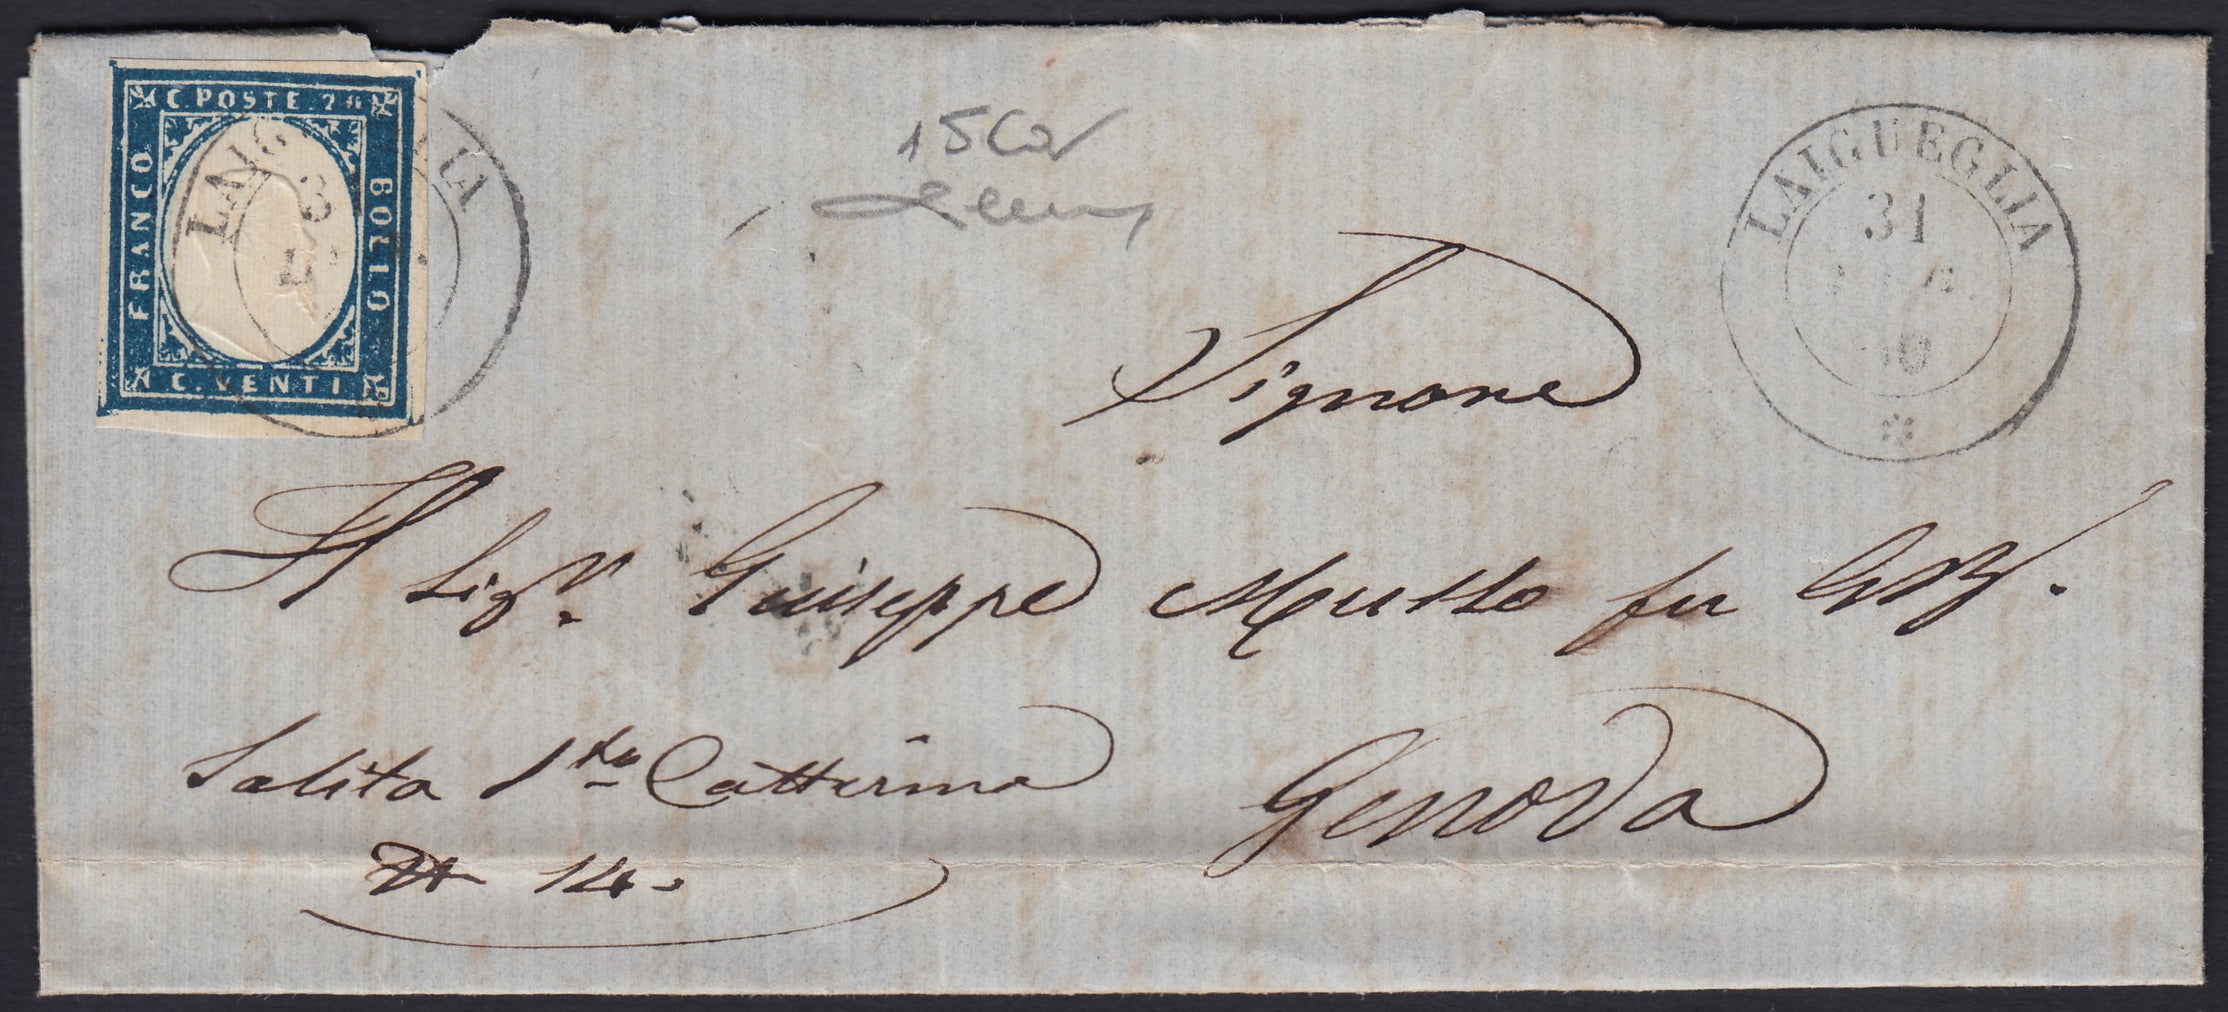 C. POSTE. 20
FRANCO
BOLLO
C. VENTI
LAIGUEGLIA
31
15Co
LAIGUEGLIA
31
Signore
Il Sigr. Giuseppe Mutto fu
Salita Sta Catterina
N 14.
Genova